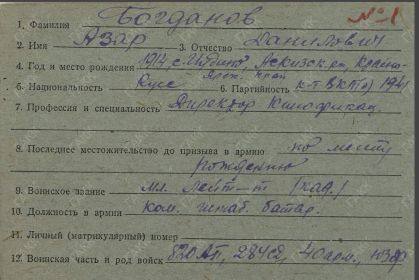 №1
1. Фамилия Богданов
2. Имя Азар 3. Отчество Данилович
4. Год и место рождения 1914 с. Аскизск. рн, Красно-
Ярск. край
5. Национальность 6. Партийность к-т ВКП(б) 1941
7. Профессия и специальность Директор Кинофикац.
8. Последнее местожительство до призыва в армию по месту
рождению
9. Воинское звание мл. лейт-т (кад.)
10. Должность в армии ком. штаб. батар.
11. Личный (матрикулярный) номер
12. Воинская часть и род войск 820 АП, 284 СД, 40 арм.,